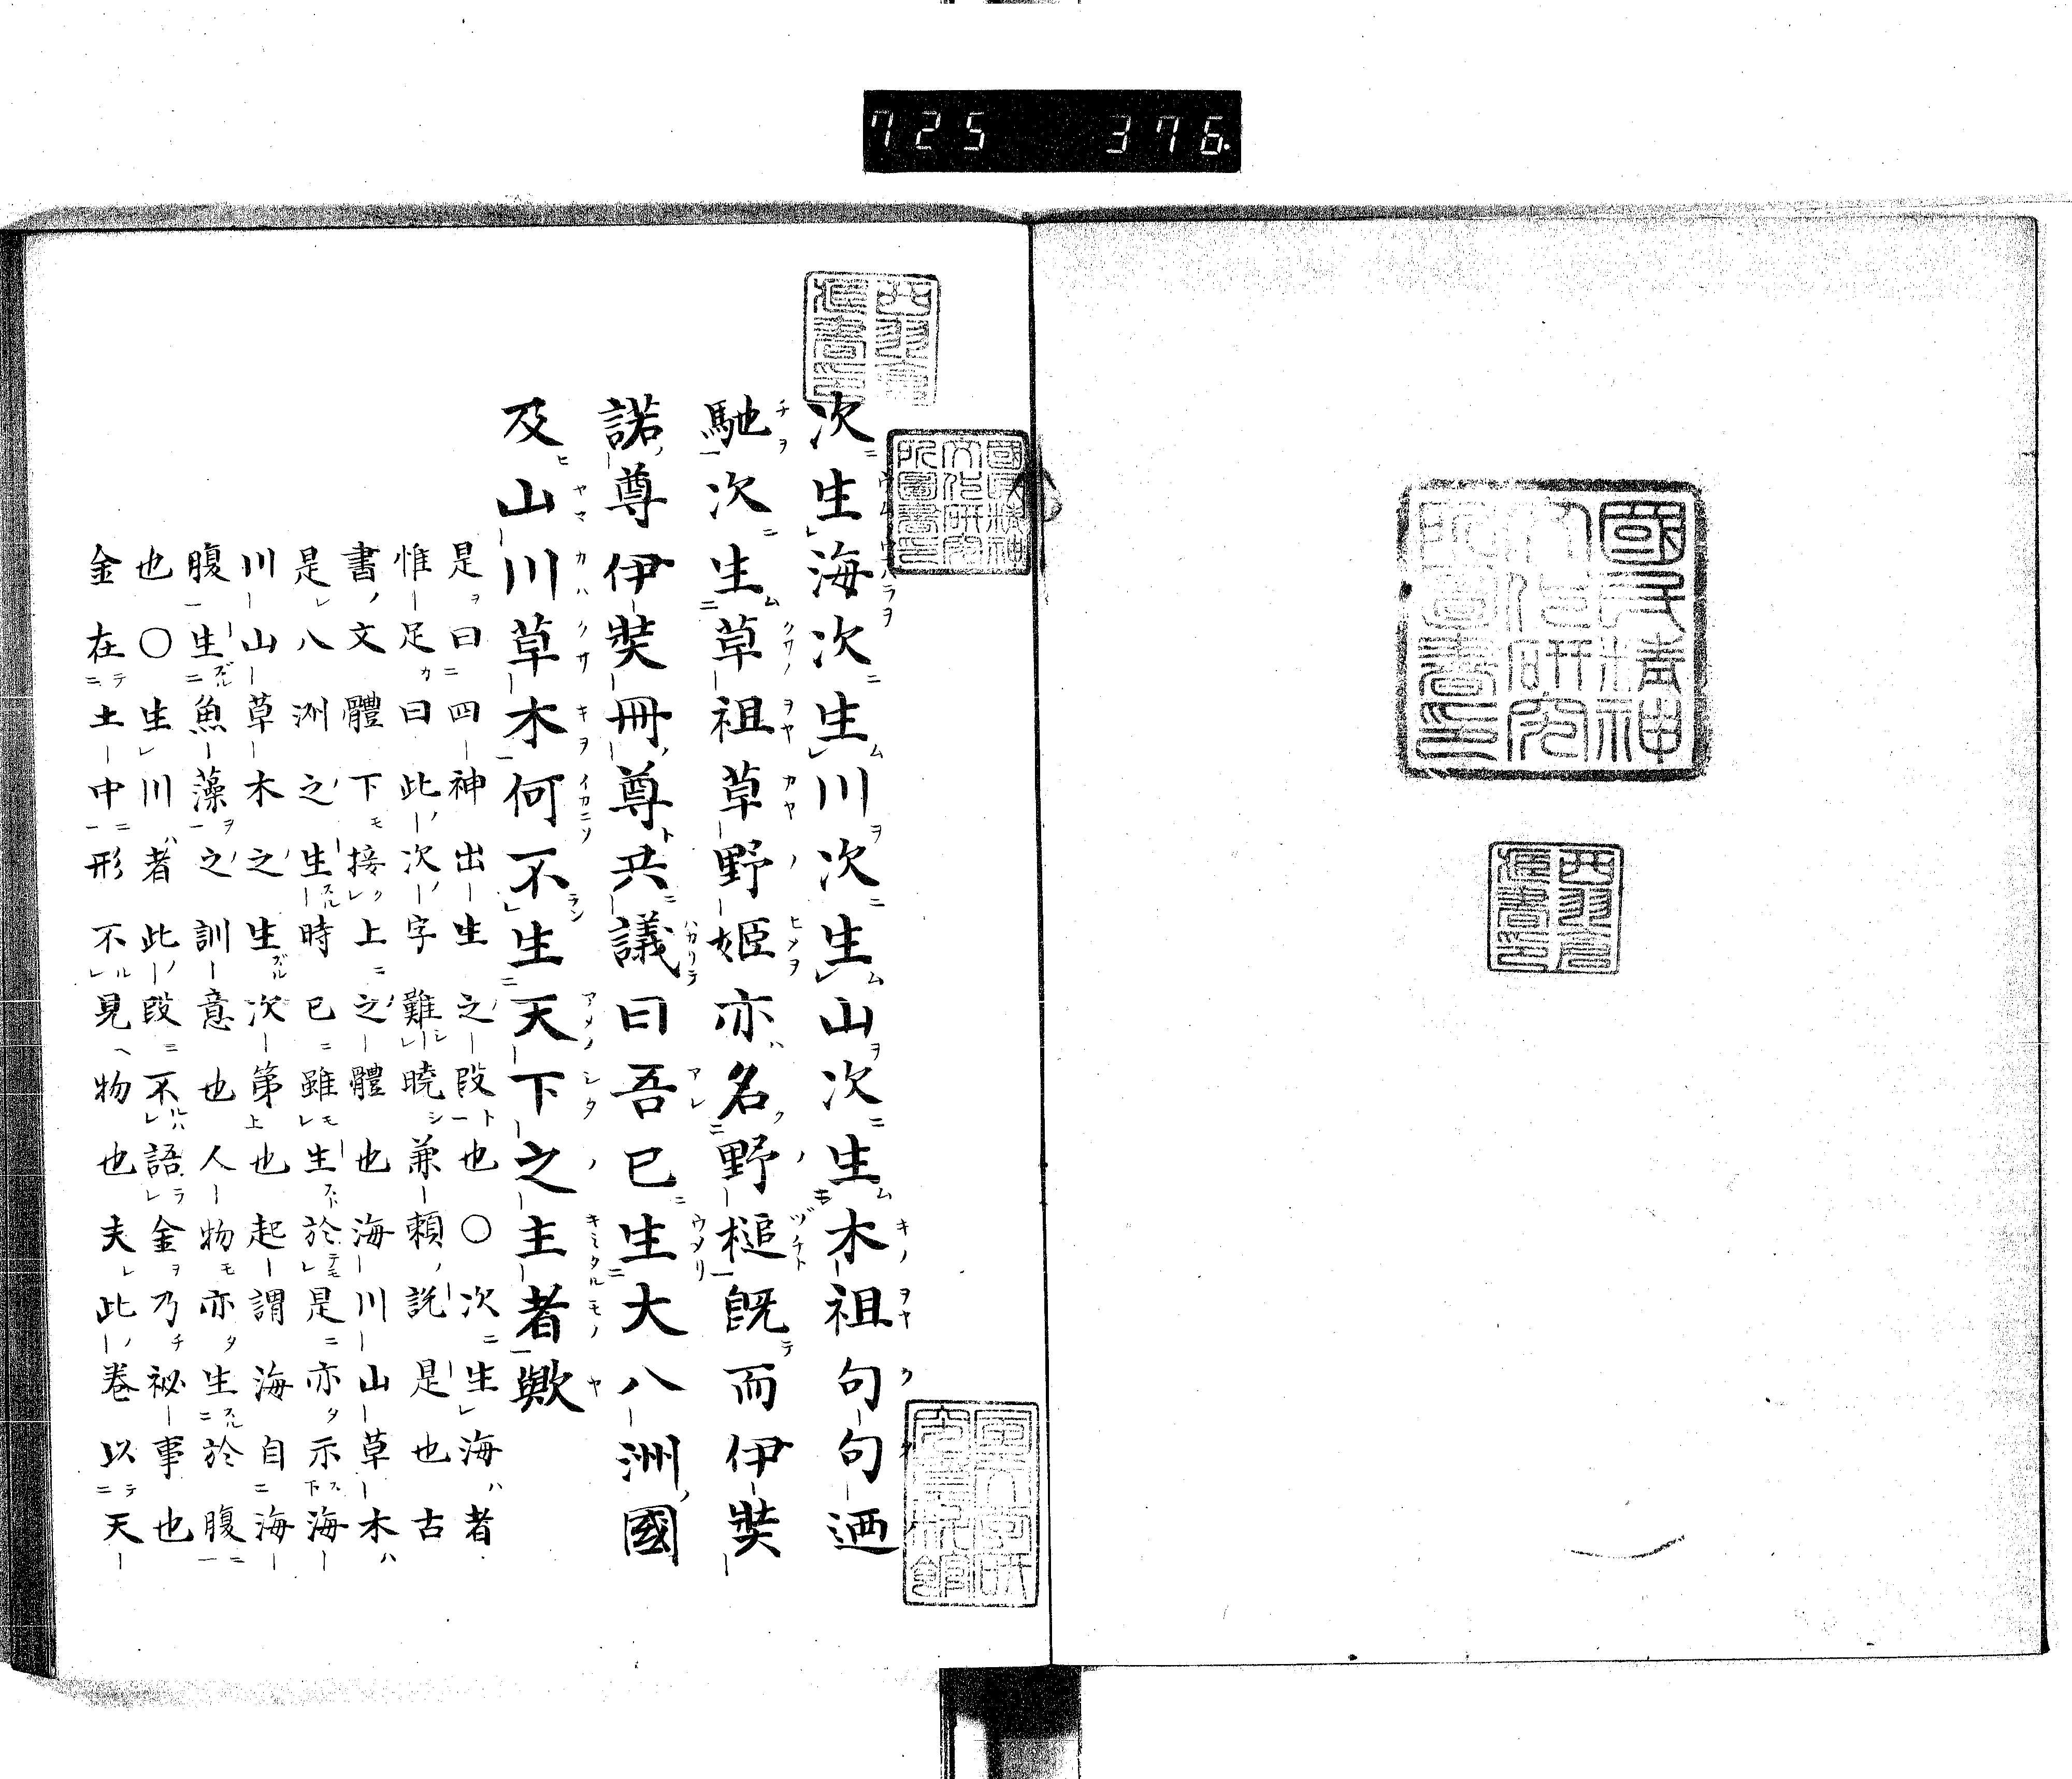 725 376
國民精神
文化研究
所圖書印
次生海次生川次生山次生木祖句句廼
馳次生草祖草野姬亦名野槌既而伊奘
諾尊伊奘冊尊共議曰吾已生大八洲國
及山川草木何不生天下之主者歟
是曰四神出生之段也○次生海者
惟足曰此次字難曉兼頼説是也古
書文體下接上之體也海川山草木
是八洲之生時已雖生於是亦示海
川山草木之生次第也起謂海自海
腹生魚藻之訓意也人物亦生於腹
也○生川者此段不語金乃祕事也
金在土中形不見物也夫此卷以天